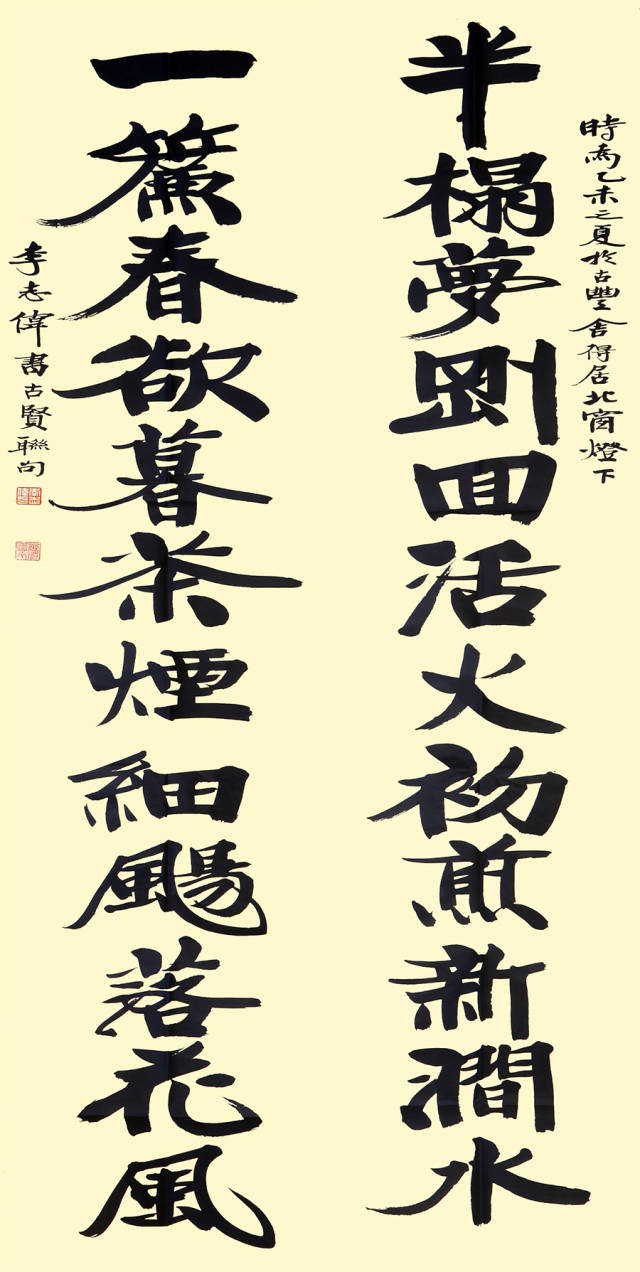 時為乙未之夏於古豐舍得居北窗燈下
半榻夢剛回活火初煎新澗水
一簾春欲暮茶煙細颺落花風
李志偉書古賢聯句